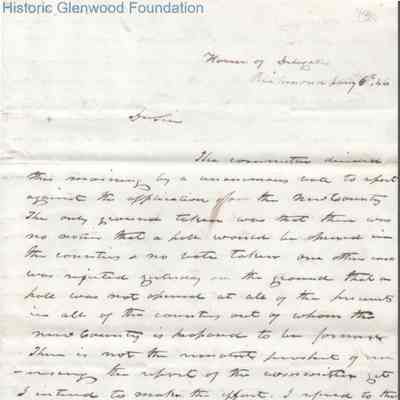 Historic Glenwood Foundation
House of Delegates
Richmond Jany 6th
Dr Sir
The committee decided
this morning by a unanimous vote to report
against the application for the New County
The only ground taken was that there was
no notice that a poll would be opened in
the counties & no vote taken one other case
was rejected yesterday on the ground that a
poll was not opened at all of the precincts
in all of the counties out of whom the
new County is proposed to be formed
There is not the remotest prospect of
the report of the committee yet
I intend to make the effort. I refered to the